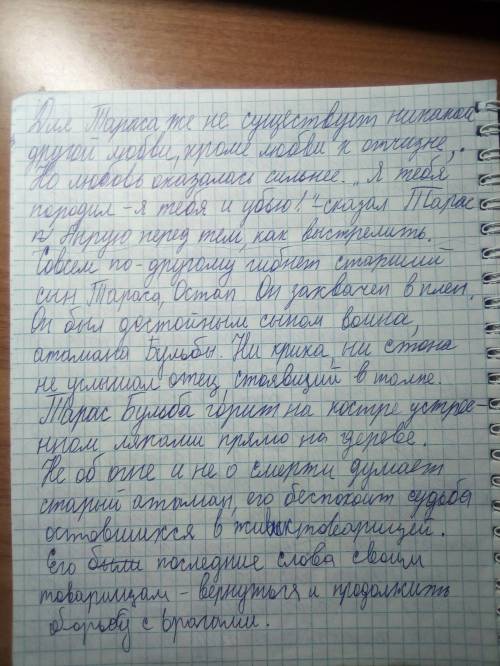 Для Тараса же не существует никакой
другой любви, кроме любви к отчизне,.
Но любовь оказалась сильнее. „Я тебя
породил - я тебя и убью!" - сказал Тарас
Андрую перед тем, как выстрелить.
Совсем по-другому гибнет старший
сын Тараса, Остап. Он захвачен в плен.
Он был достойным сыном воина,
атамана Бульбы. Ни крика, ни стона
не услышал отец, стоявший в толпе.
Тарас Бульба горит на костре устрое-
нном ляхами прямо на дереве.
Не об огне и не о смерти думает
старый атаман, его беспокоит судьба
оставшихся в живых товарищей.
Его были последние слова своим
товарищам - вернуться и продолжить
борьбу с врагами.